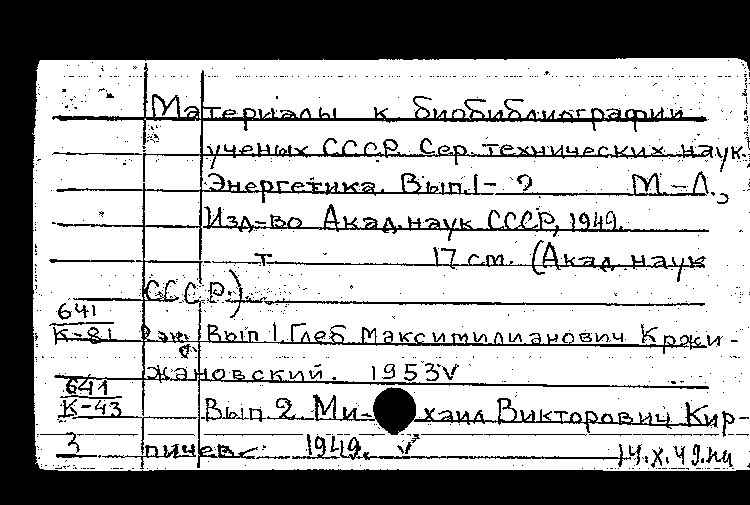 Материалы к биобиблиографии
ученых СССР. Сер. технических наук
Энергетика. Вып.1- 2 М.-Л.,
Изд-во Акад.наук СССР, 1949.
т 17 см. (Акад. наук
СССР.)
641
К-81 2 эк. Вып 1. Глеб Максимилианович Кржи-
жановский. 1953 V
641
К-43 Вып 2. Ми- хаил Викторович Кир-
3 пичев 1949. V 14.X.49.